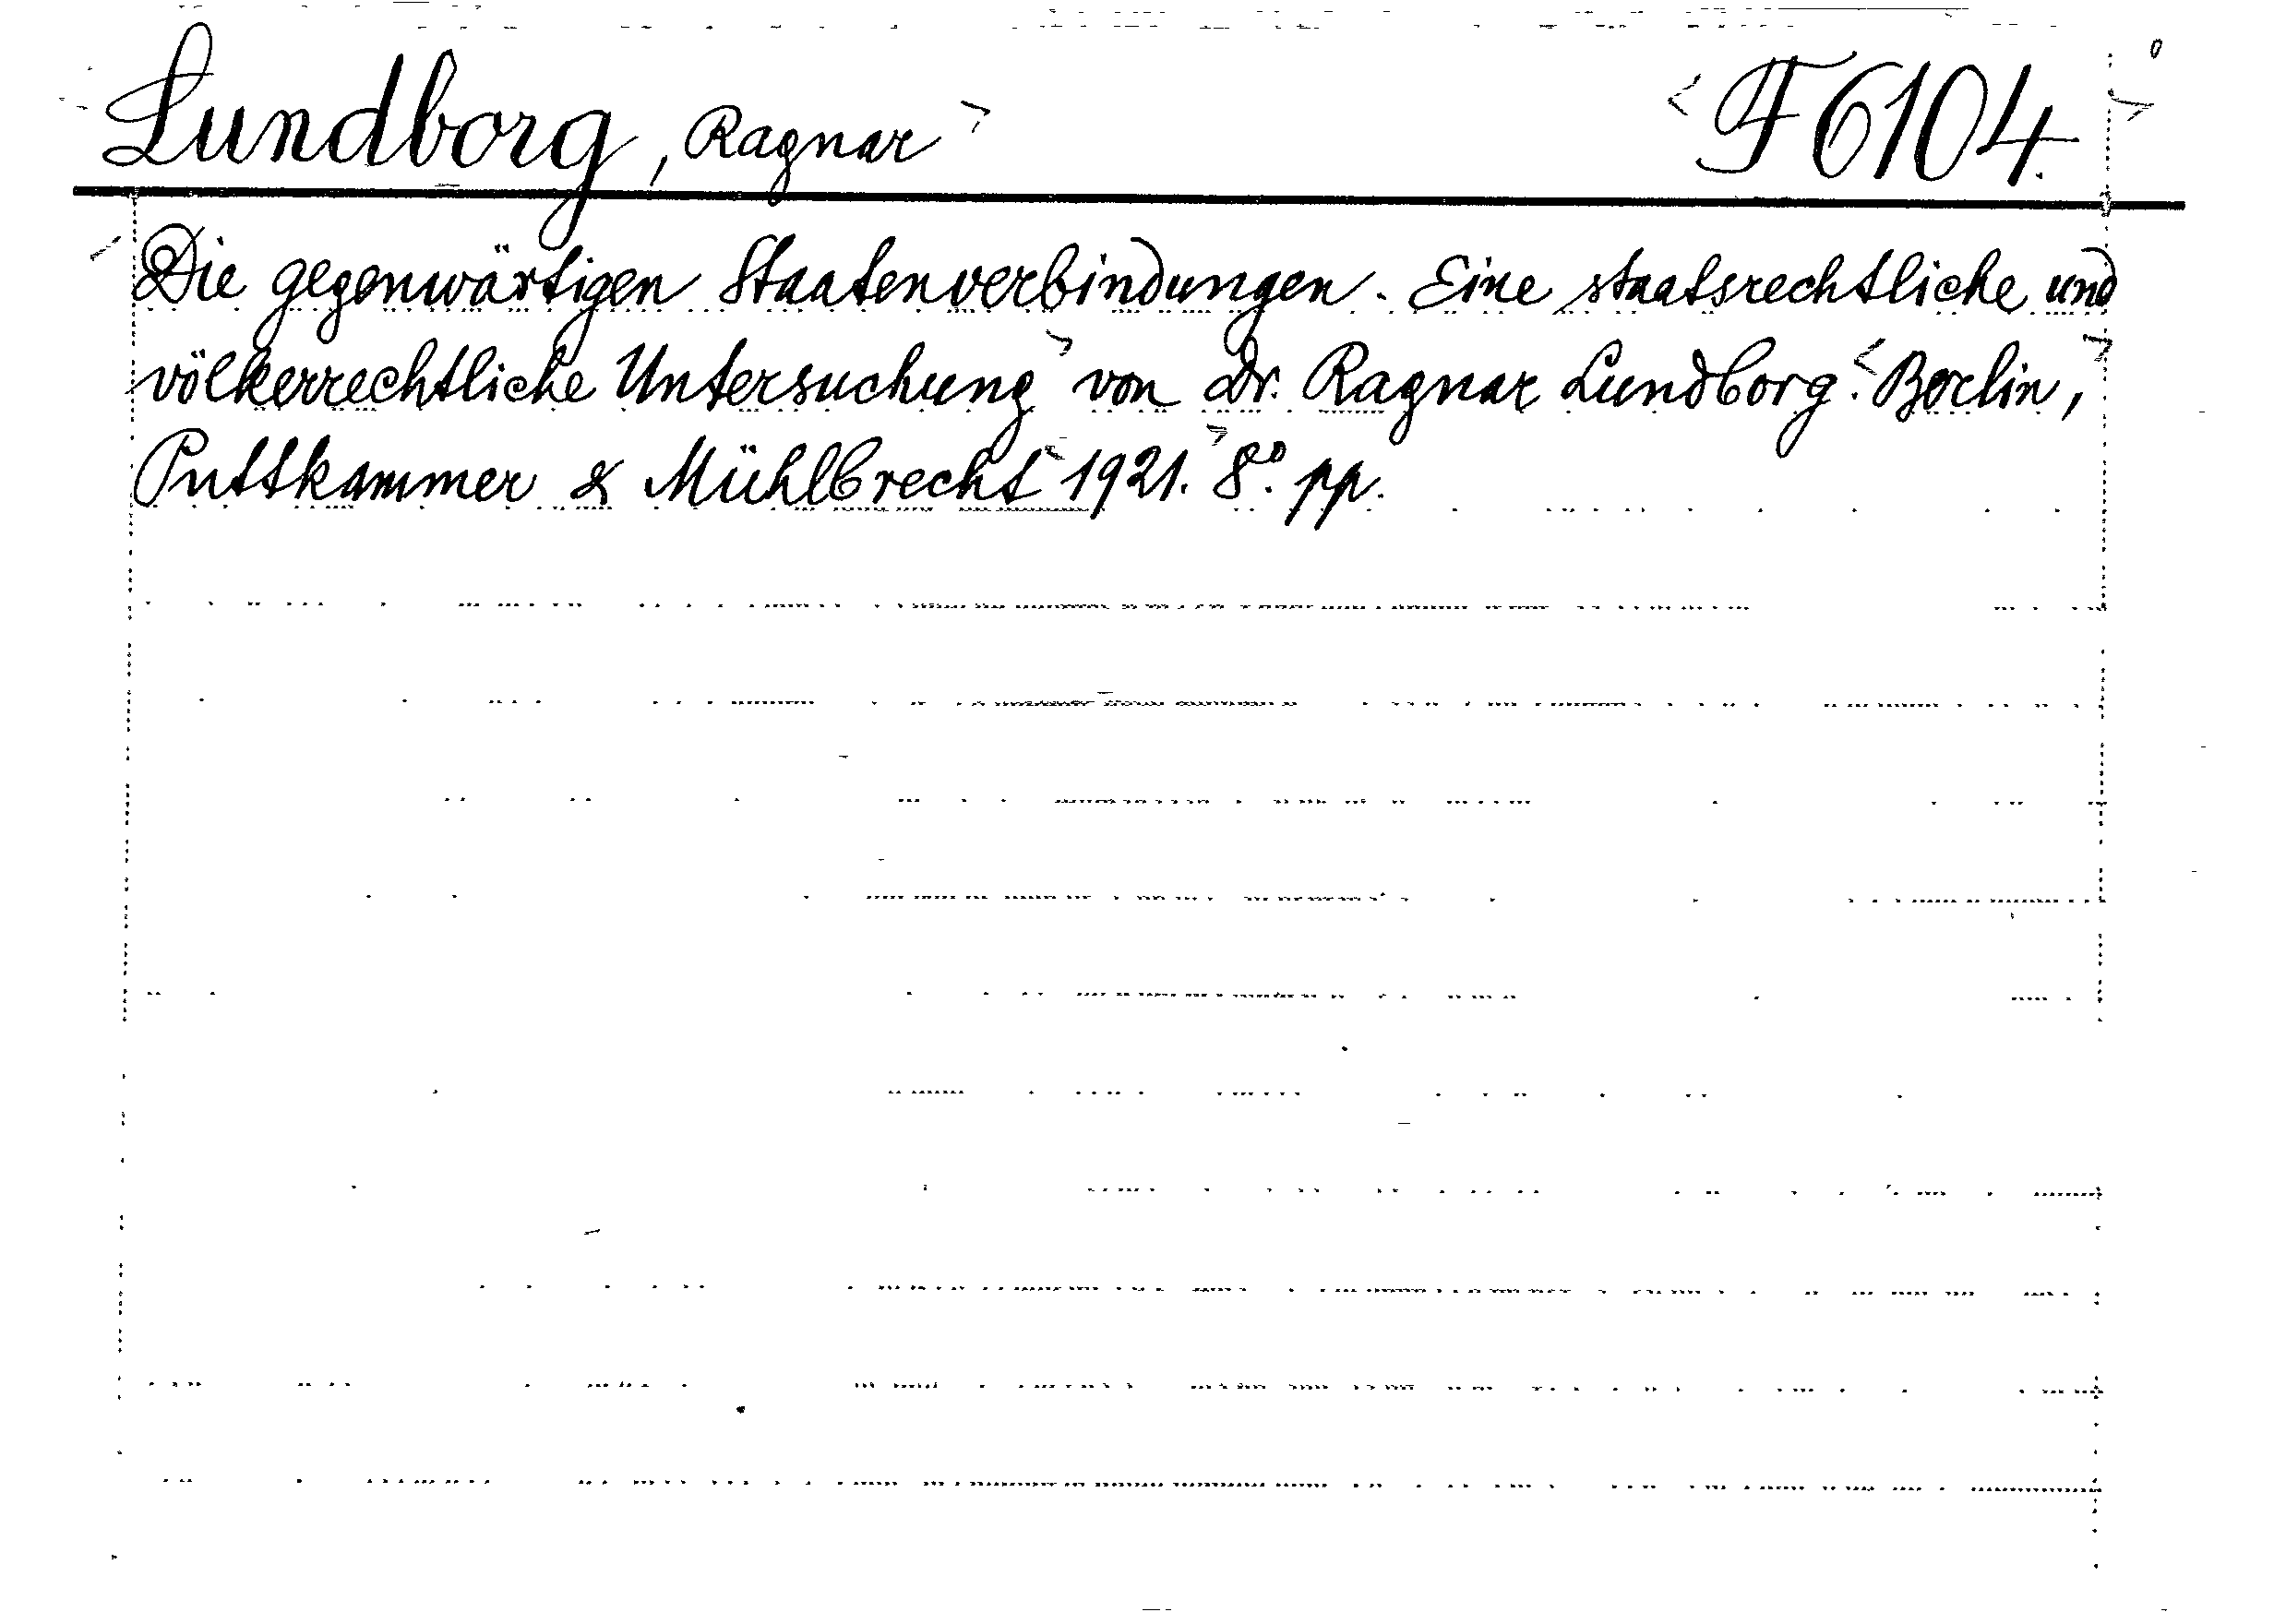 Lundborg, Ragnar F 6104.
Die gegenwärtigen Staatenverbindungen. Eine staatsrechtliche und
völkerrechtliche Untersuchung von Dr. Ragnar Lundborg. Berlin,
Puttkammer & Mühlbrecht 1921. 8°. pp.